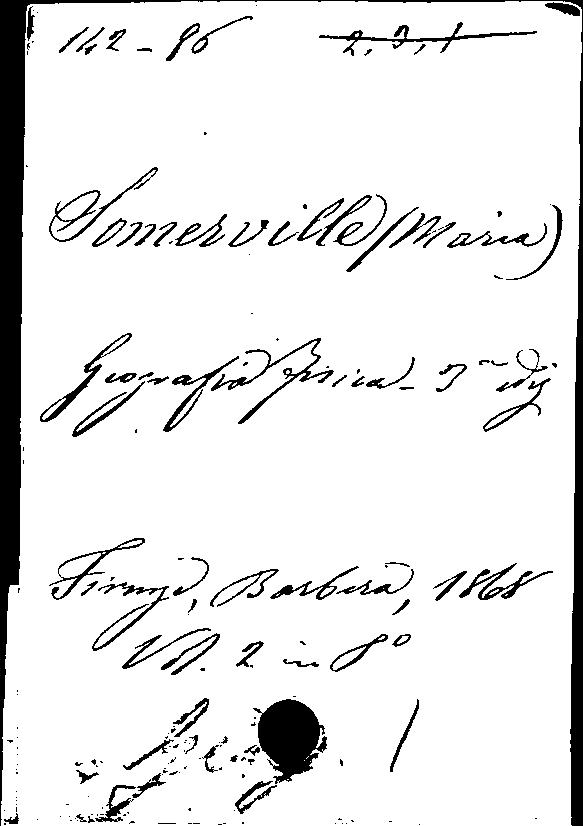 142-96 2, 3, 1
Somerville (Maria)
Geografia fisica - 3ª ediz
Firenze, Barbera, 1868
Vol. 2 in 8º
Geog. 1